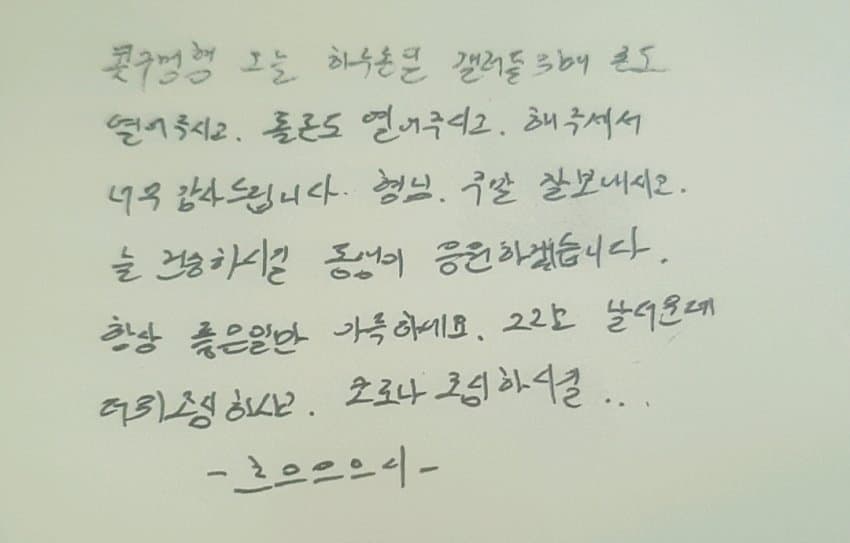 콧구멍형 오늘 하루온달 갤러들 위해 콘도
열어주시고. 톨론도 열어주시고. 해주셔서
너무 감사드립니다. 형님. 주말 잘보내시오.
늘 건승하시길 동생이 응원하겠습니다.
항상 좋은일만 가득하세요. 그리고 날더운데
더위조심하시고. 코로나 조심하시길...